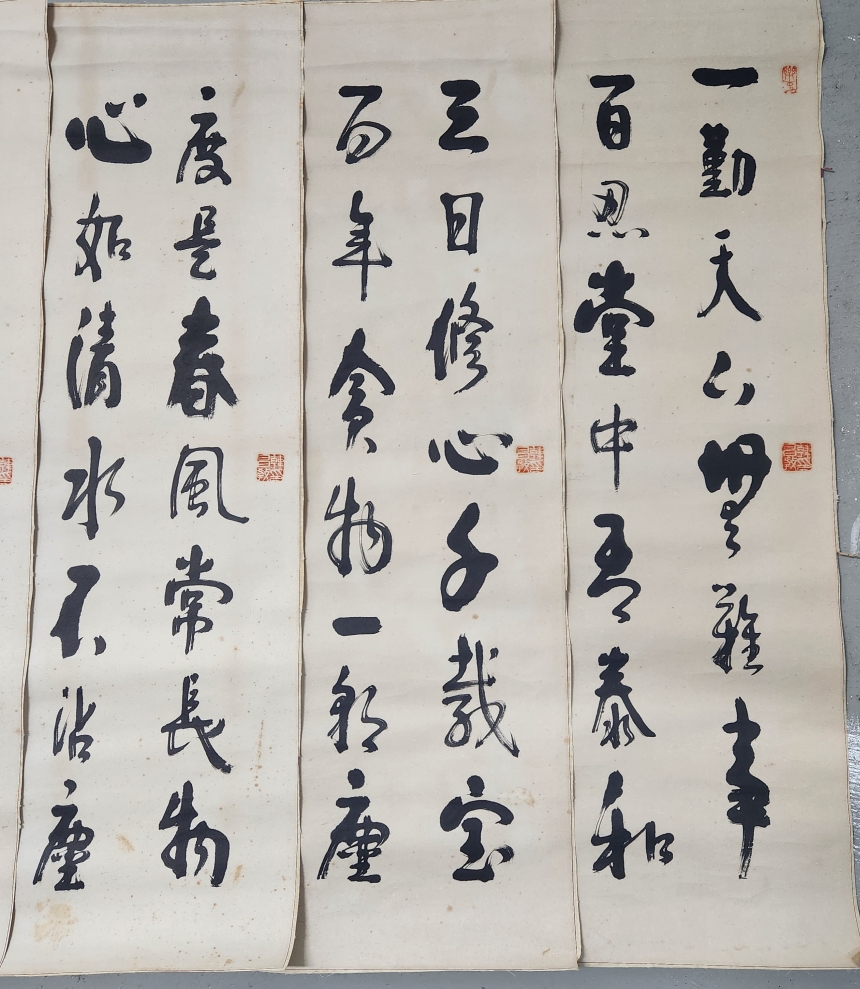 一勤天下無難事
百忍堂中有泰和
三日修心千載宝
百年貪物一朝塵
度是春風常長物
心如清水不沾塵